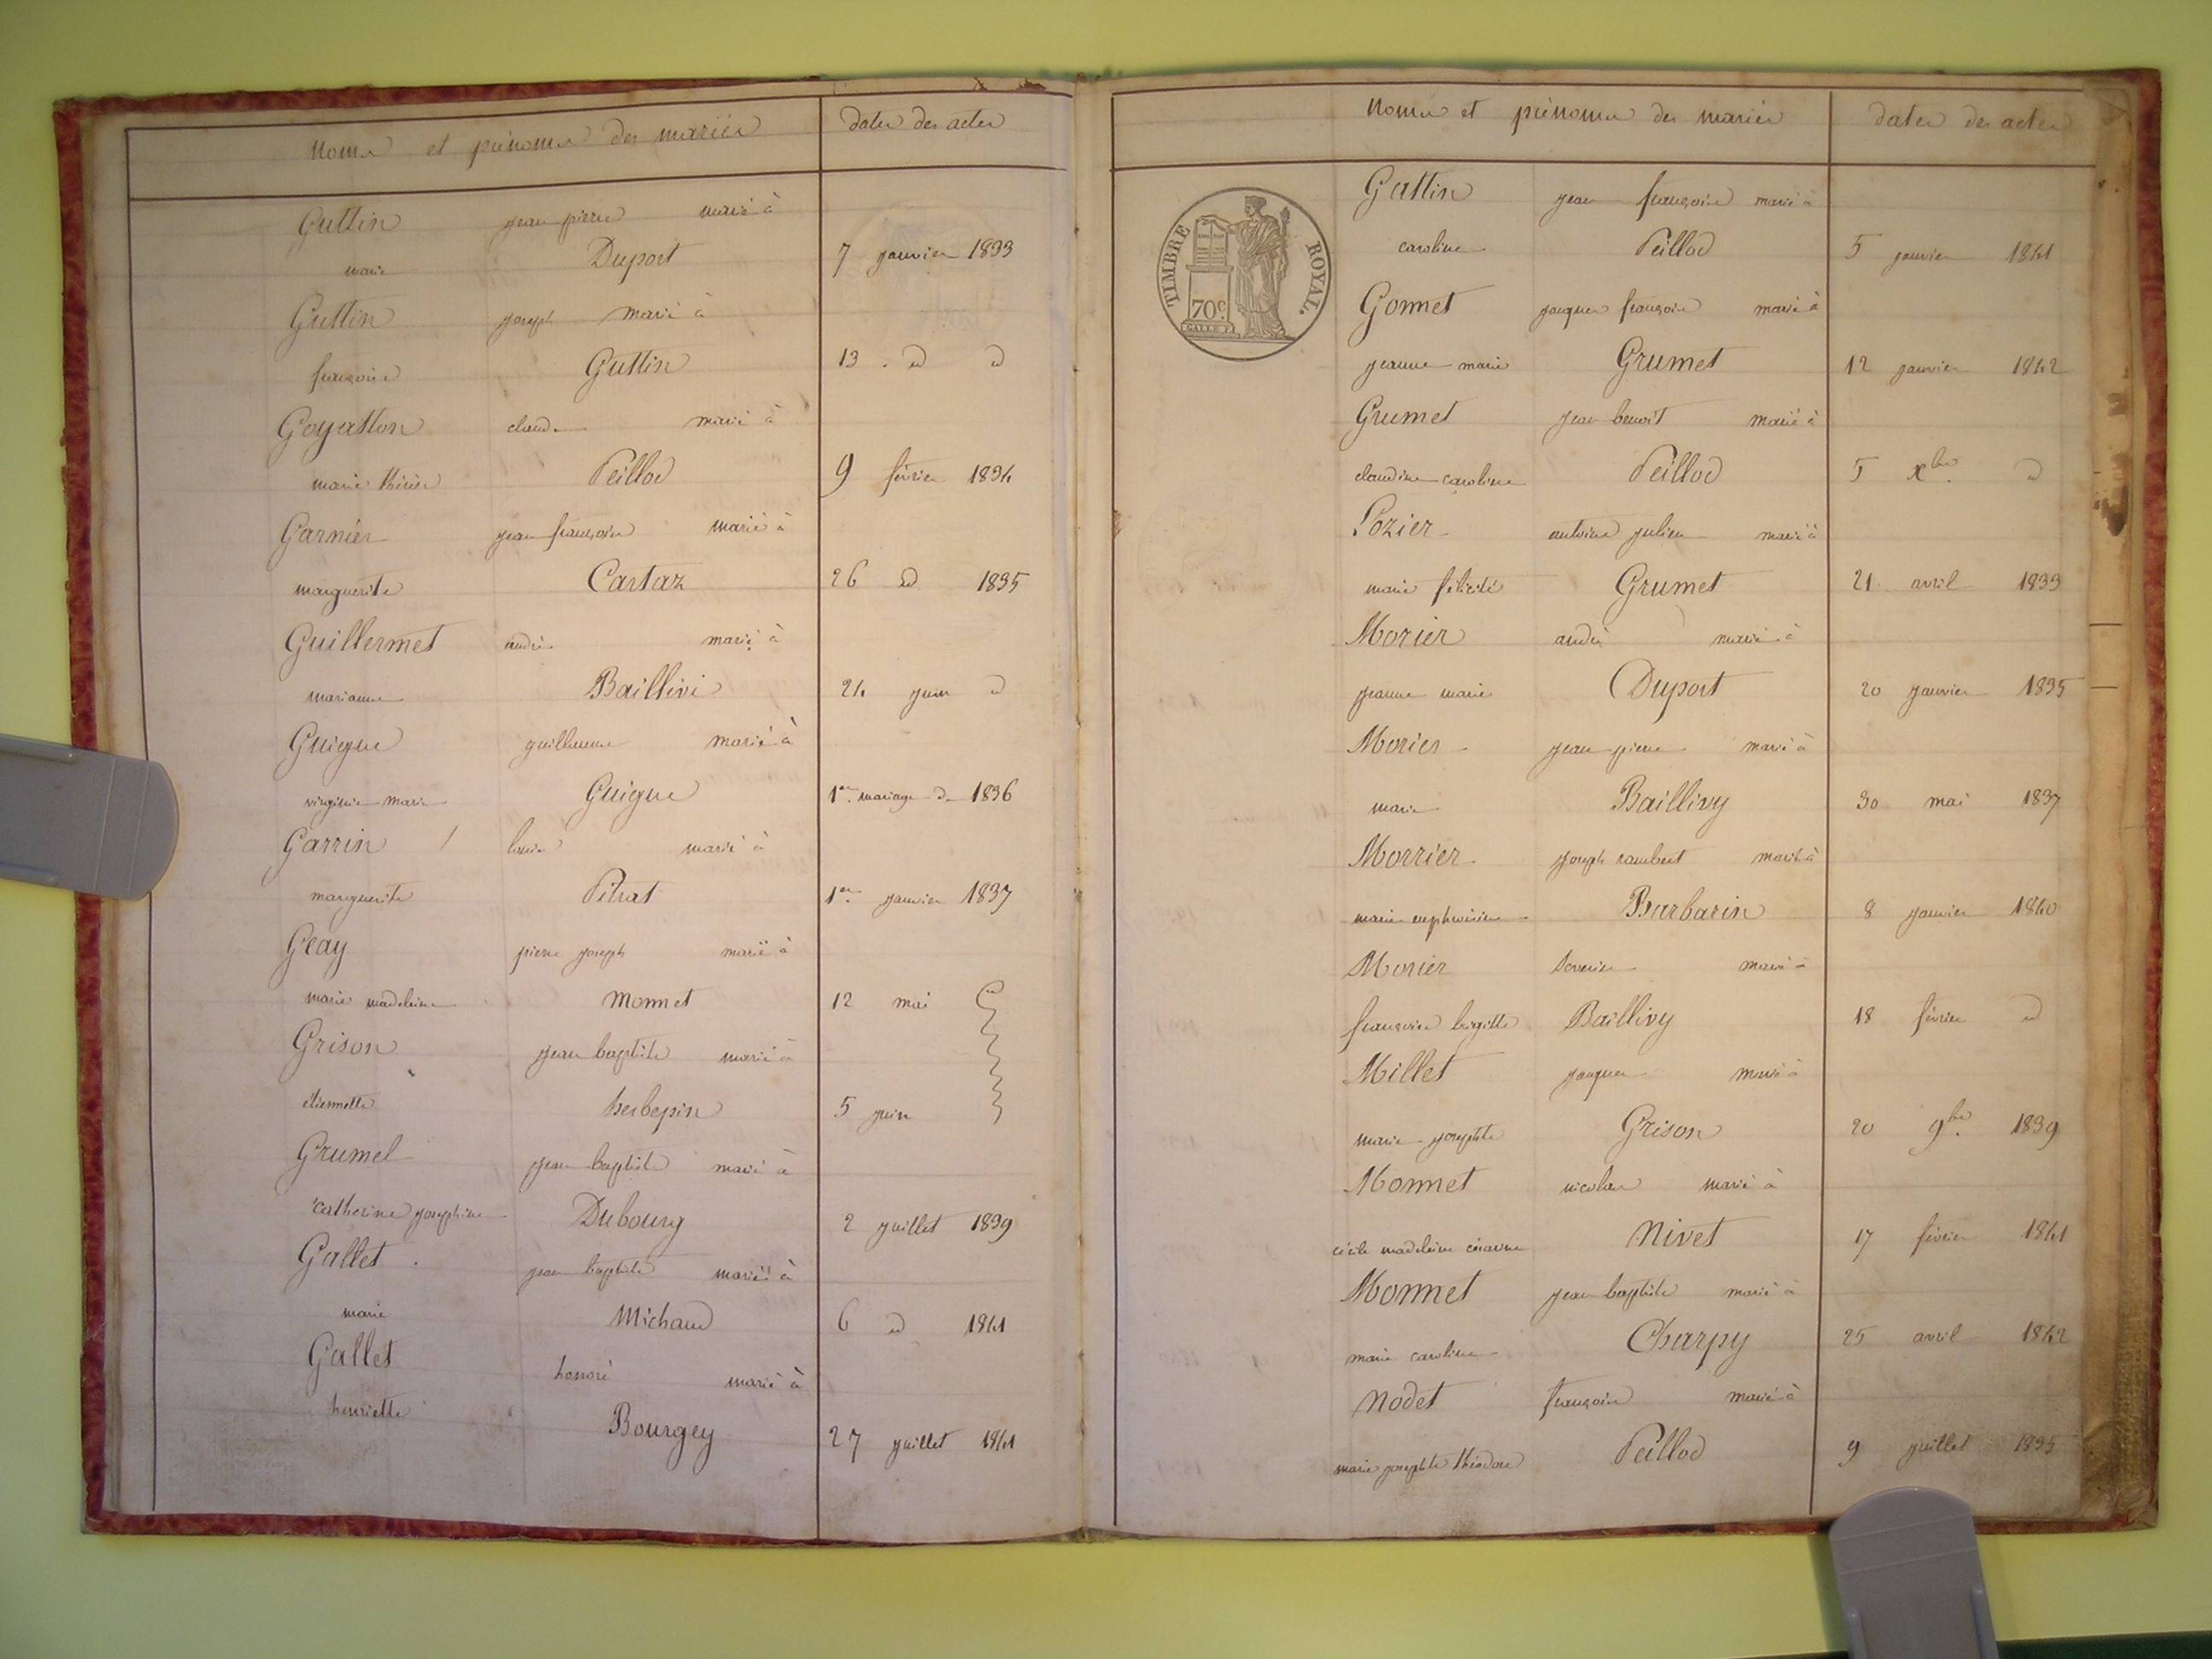 noms et prénoms des mariés dates des actes
Guttin jean pierre marié à
marie Duport 7 janvier 1833
Guttin joseph marié à
françoise Guttin 13 d d
Goyatton claude marié à
marie thérèse Peillod 9 février 1834
Garnier jean françois marié à
marguerite Cartaz 26 d 1835
Guillermet andré marié à
marianne Baillivi 24 juin d
Guigue guillaume marié à
virginie marie Guigue 1er mariage d 1836
Garrin louis marié à
marguerite Pitrat 1er janvier 1837
Geay pierre joseph marié à
marie madeleine monnet 12 mai
Grison jean baptiste marié à
étiennette herbepin 5 juin
Grumel jean baptiste marié à
catherine josephine Dubourg 2 juillet 1839
Gallet jean baptiste marié à
marie Michaud 6 d 1841
Gallet honoré marié à
henriette Bourgey 27 juillet 1841
noms et prénoms des mariés dates des actes
TIMBRE ROYAL.
70c.
Gattin jean françois marié à
caroline Peillod 5 janvier 1841
Gonnet jacques françois marié à
jeanne marie Grumet 12 janvier 1842
Grumet jean benoit marié à
claudine caroline Peillod 5 xbre d
Lozier antoine julien marié à
marie félicité Grumet 21 avril 1833
Morier andré marié à
jeanne marie Duport 20 janvier 1835
Morier jean pierre marié à
marie Baillivy 30 mai 1837
Morrier joseph rambert marié à
marie euphroisine Barbarin 8 janvier 1840
Morier séverin marié à
françoise brigitte Baillivy 18 février d
Millet jacques marié à
marie josephte Grison 20 9bre 1839
Monnet nicolas marié à
cécile madeleine Nivet 17 février 1841
Monnet jean baptiste marié à
marie caroline Charpy 25 avril 1842
nodet françois marié à
marie josephte théodore Peillod 9 juillet 1835